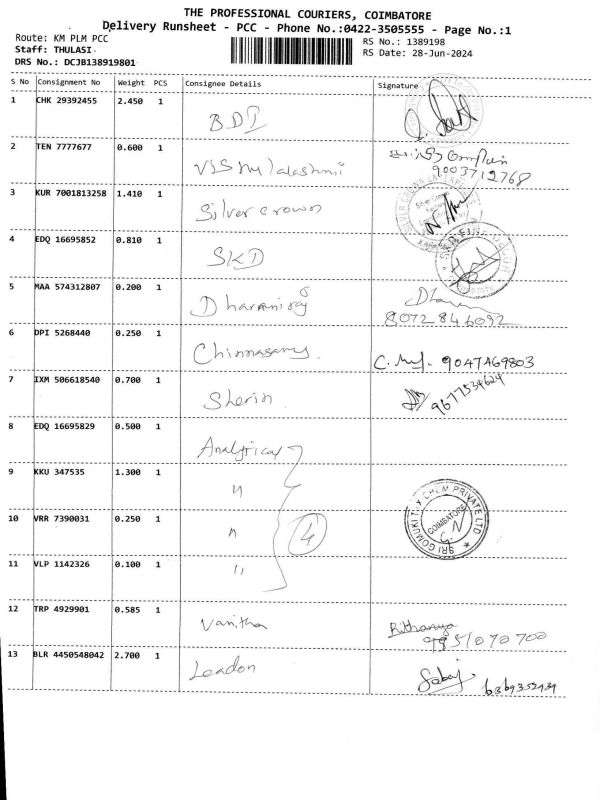 THE PROFESSIONAL COURIERS, COIMBATORE
Delivery Runsheet - PCC - Phone No.:0422-3505555 - Page No.:1
Route: KM PLM PCC
RS No.: 1389198
Staff: THULASI
RS Date: 28-Jun-2024
DRS No.: DCJB138919801
S No Consignment No Weight PCS Consignee Details Signature
1 CHK 29392455 2.450 1 BDI
2 TEN 7777677 0.600 1
9003712768
3 KUR 7001813258 1.410 1 Silver crown
4 EDQ 16695852 0.810 1 SKD
5 MAA 574312807 0.200 1
8072846092
6 DPI 5268440 0.250 1 Chinnasamy. 9047469803
7 IXM 506618540 0.700 1 Sherin. 9677534624
8 EDQ 16695829 0.500 1 Analytical
9 KKU 347535 1.300 1 "
10 VRR 7390031 0.250 1 " 4
COIMBATORE
11 VLP 1142326 0.100 1 "
12 TRP 4929901 0.585 1 Vanitha Rithanya
9951070700
13 BLR 4450548042 2.700 1 Leadon 6369352939